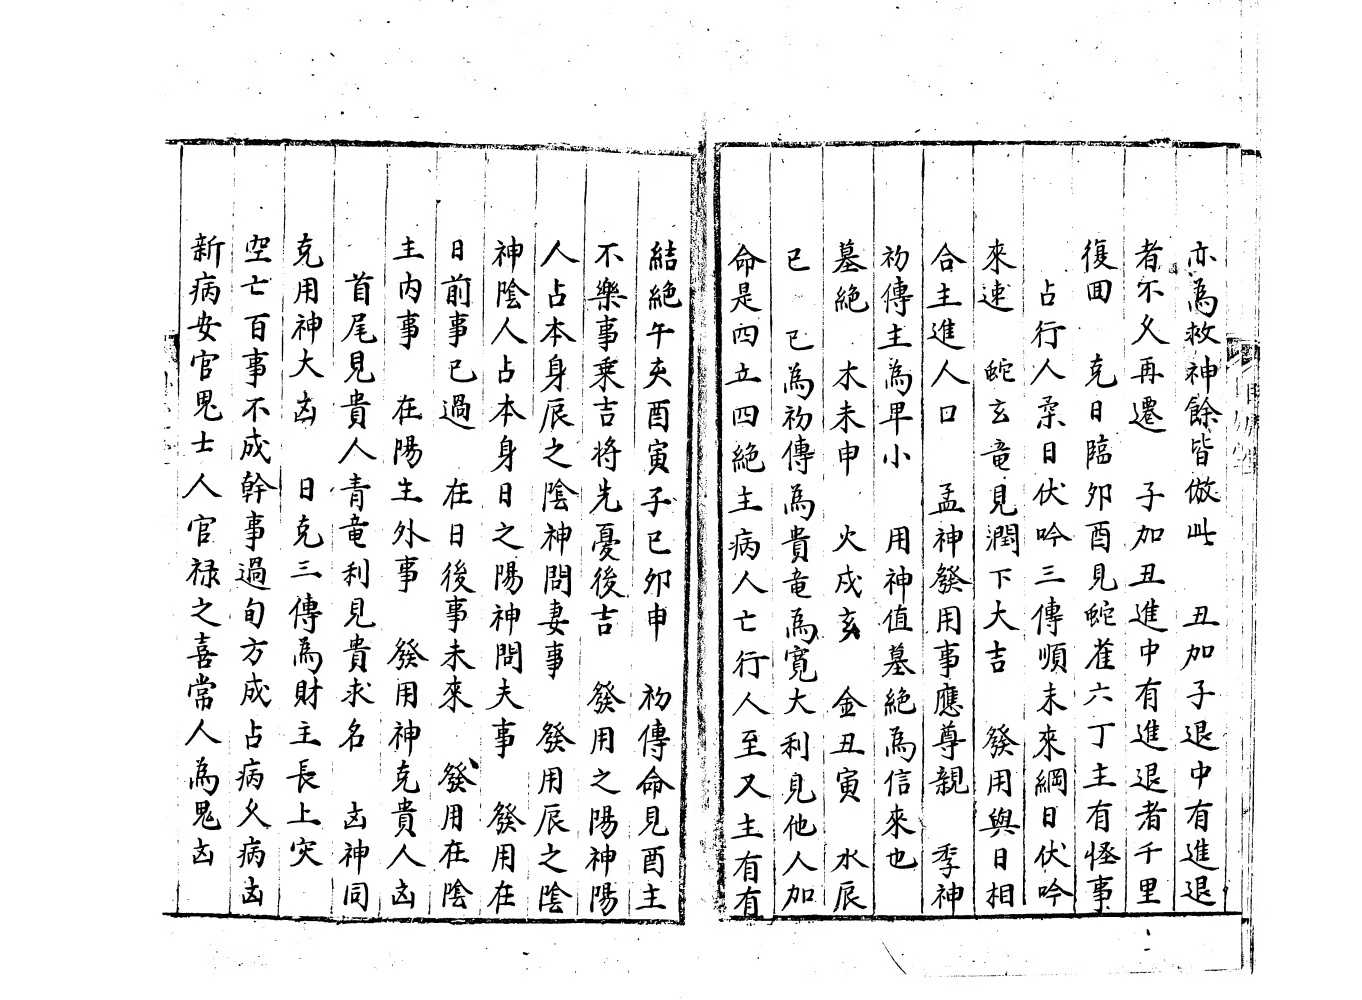 亦為救神餘皆倣此　丑加子退中有進退
者不久再遷　子加丑進中有進退者千里
復回　克日臨夘酉見蛇雀六丁主有怪事
占行人柔日伏吟三傳順未來綱日伏吟
來速　蛇玄竜見潤下大吉　發用與日相
合主進人口　孟神發用事應尊親　季神
初傳主為早小　用神值墓絕為信來也
墓絕　木未申　火戍亥　金丑寅　水辰
巳　巳為初傳為貴竜為寬大利見他人加
命是四立四絕主病人亡行人至又主有有
結絕午亥酉寅子巳夘申　初傳命見酉主
不樂事乗吉将先憂後吉　發用之陽神陽
人占本身辰之陰神問妻事　發用辰之陰
神陰人占本身日之陽神問夫事　發用在
日前事已過　在日後事未來　發用在陰
主內事　在陽生外事　發用神克貴人凶
首尾見貴人青竜利見貴求名　凶神同
克用神大凶　日克三傳為財主長上灾
空亡百事不成幹事過旬方成占病久病凶
新病安官鬼士人官禄之喜常人為鬼凶